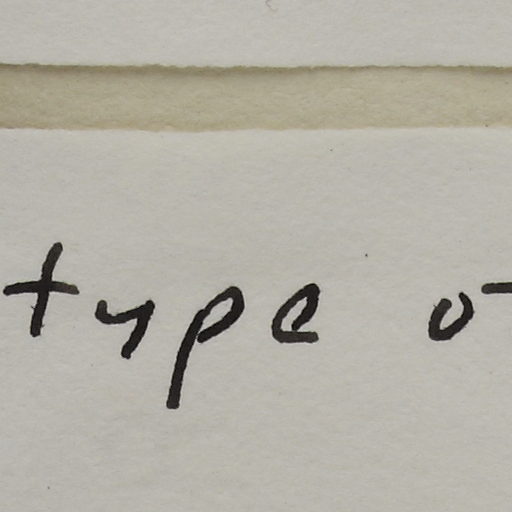 type o